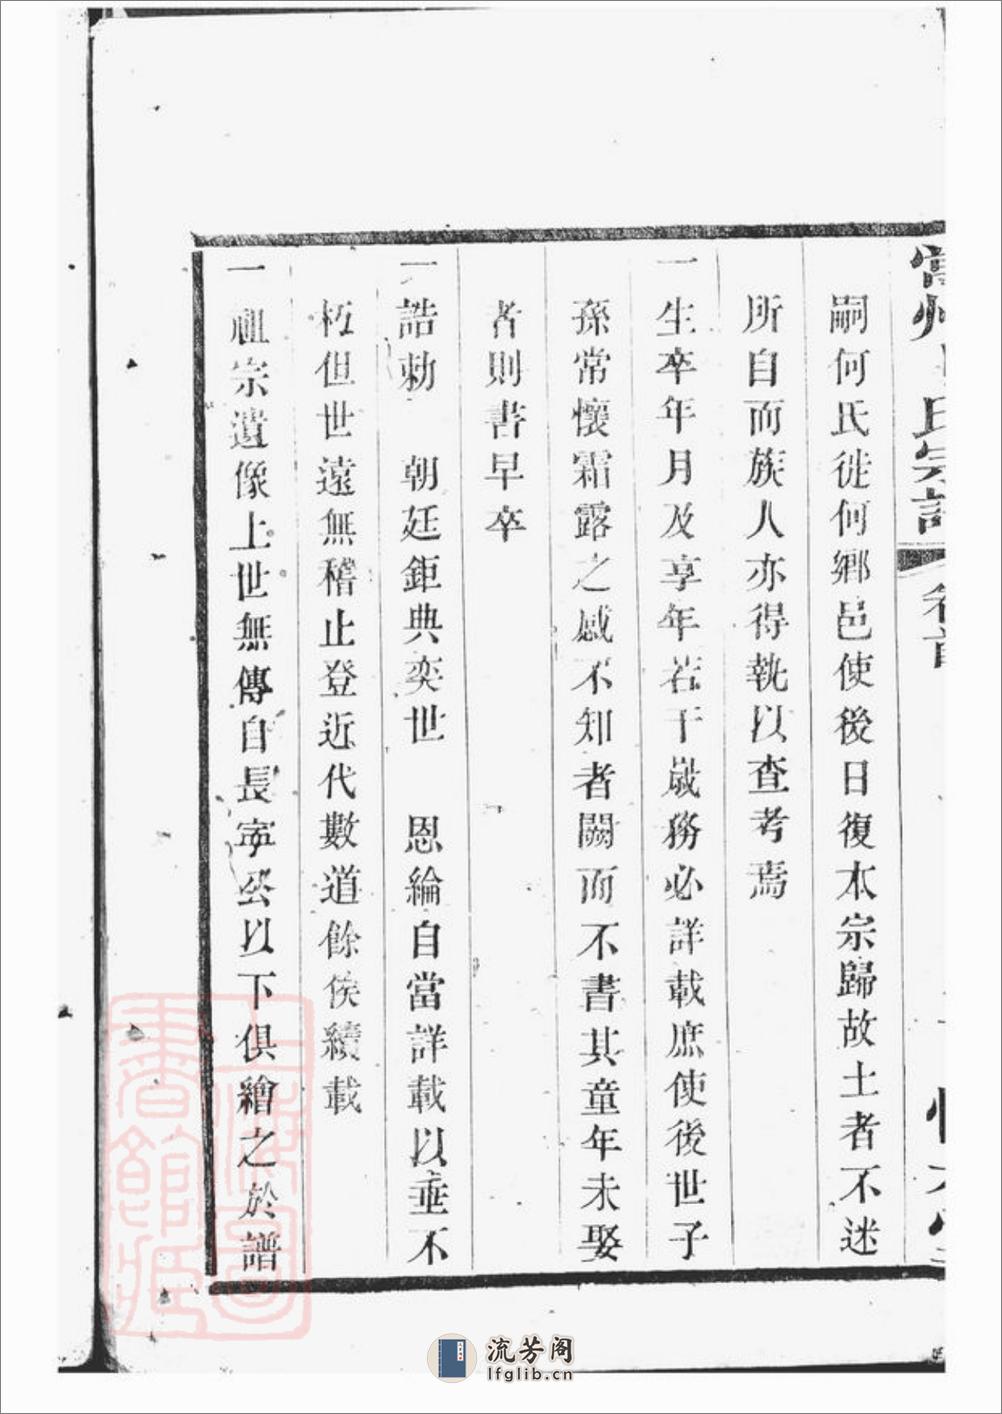 氏宗譜
嗣何氏徙何鄉邑使後日復本宗歸故土者不迷
所自而族人亦得執以查考焉
一生卒年月及享年若干歲務必詳載庶使後世子
孫常懷霜露之感不知者闕而不書其童年未娶
者則書早卒
一誥勅 朝廷鉅典奕世 恩綸自當詳載以垂不
朽但世遠無稽止登近代數道餘俟續載
一祖宗遺像上世無傳自長寧公以下俱繪之於譜
上海圖書館藏
流芳阁
lfglib.cn